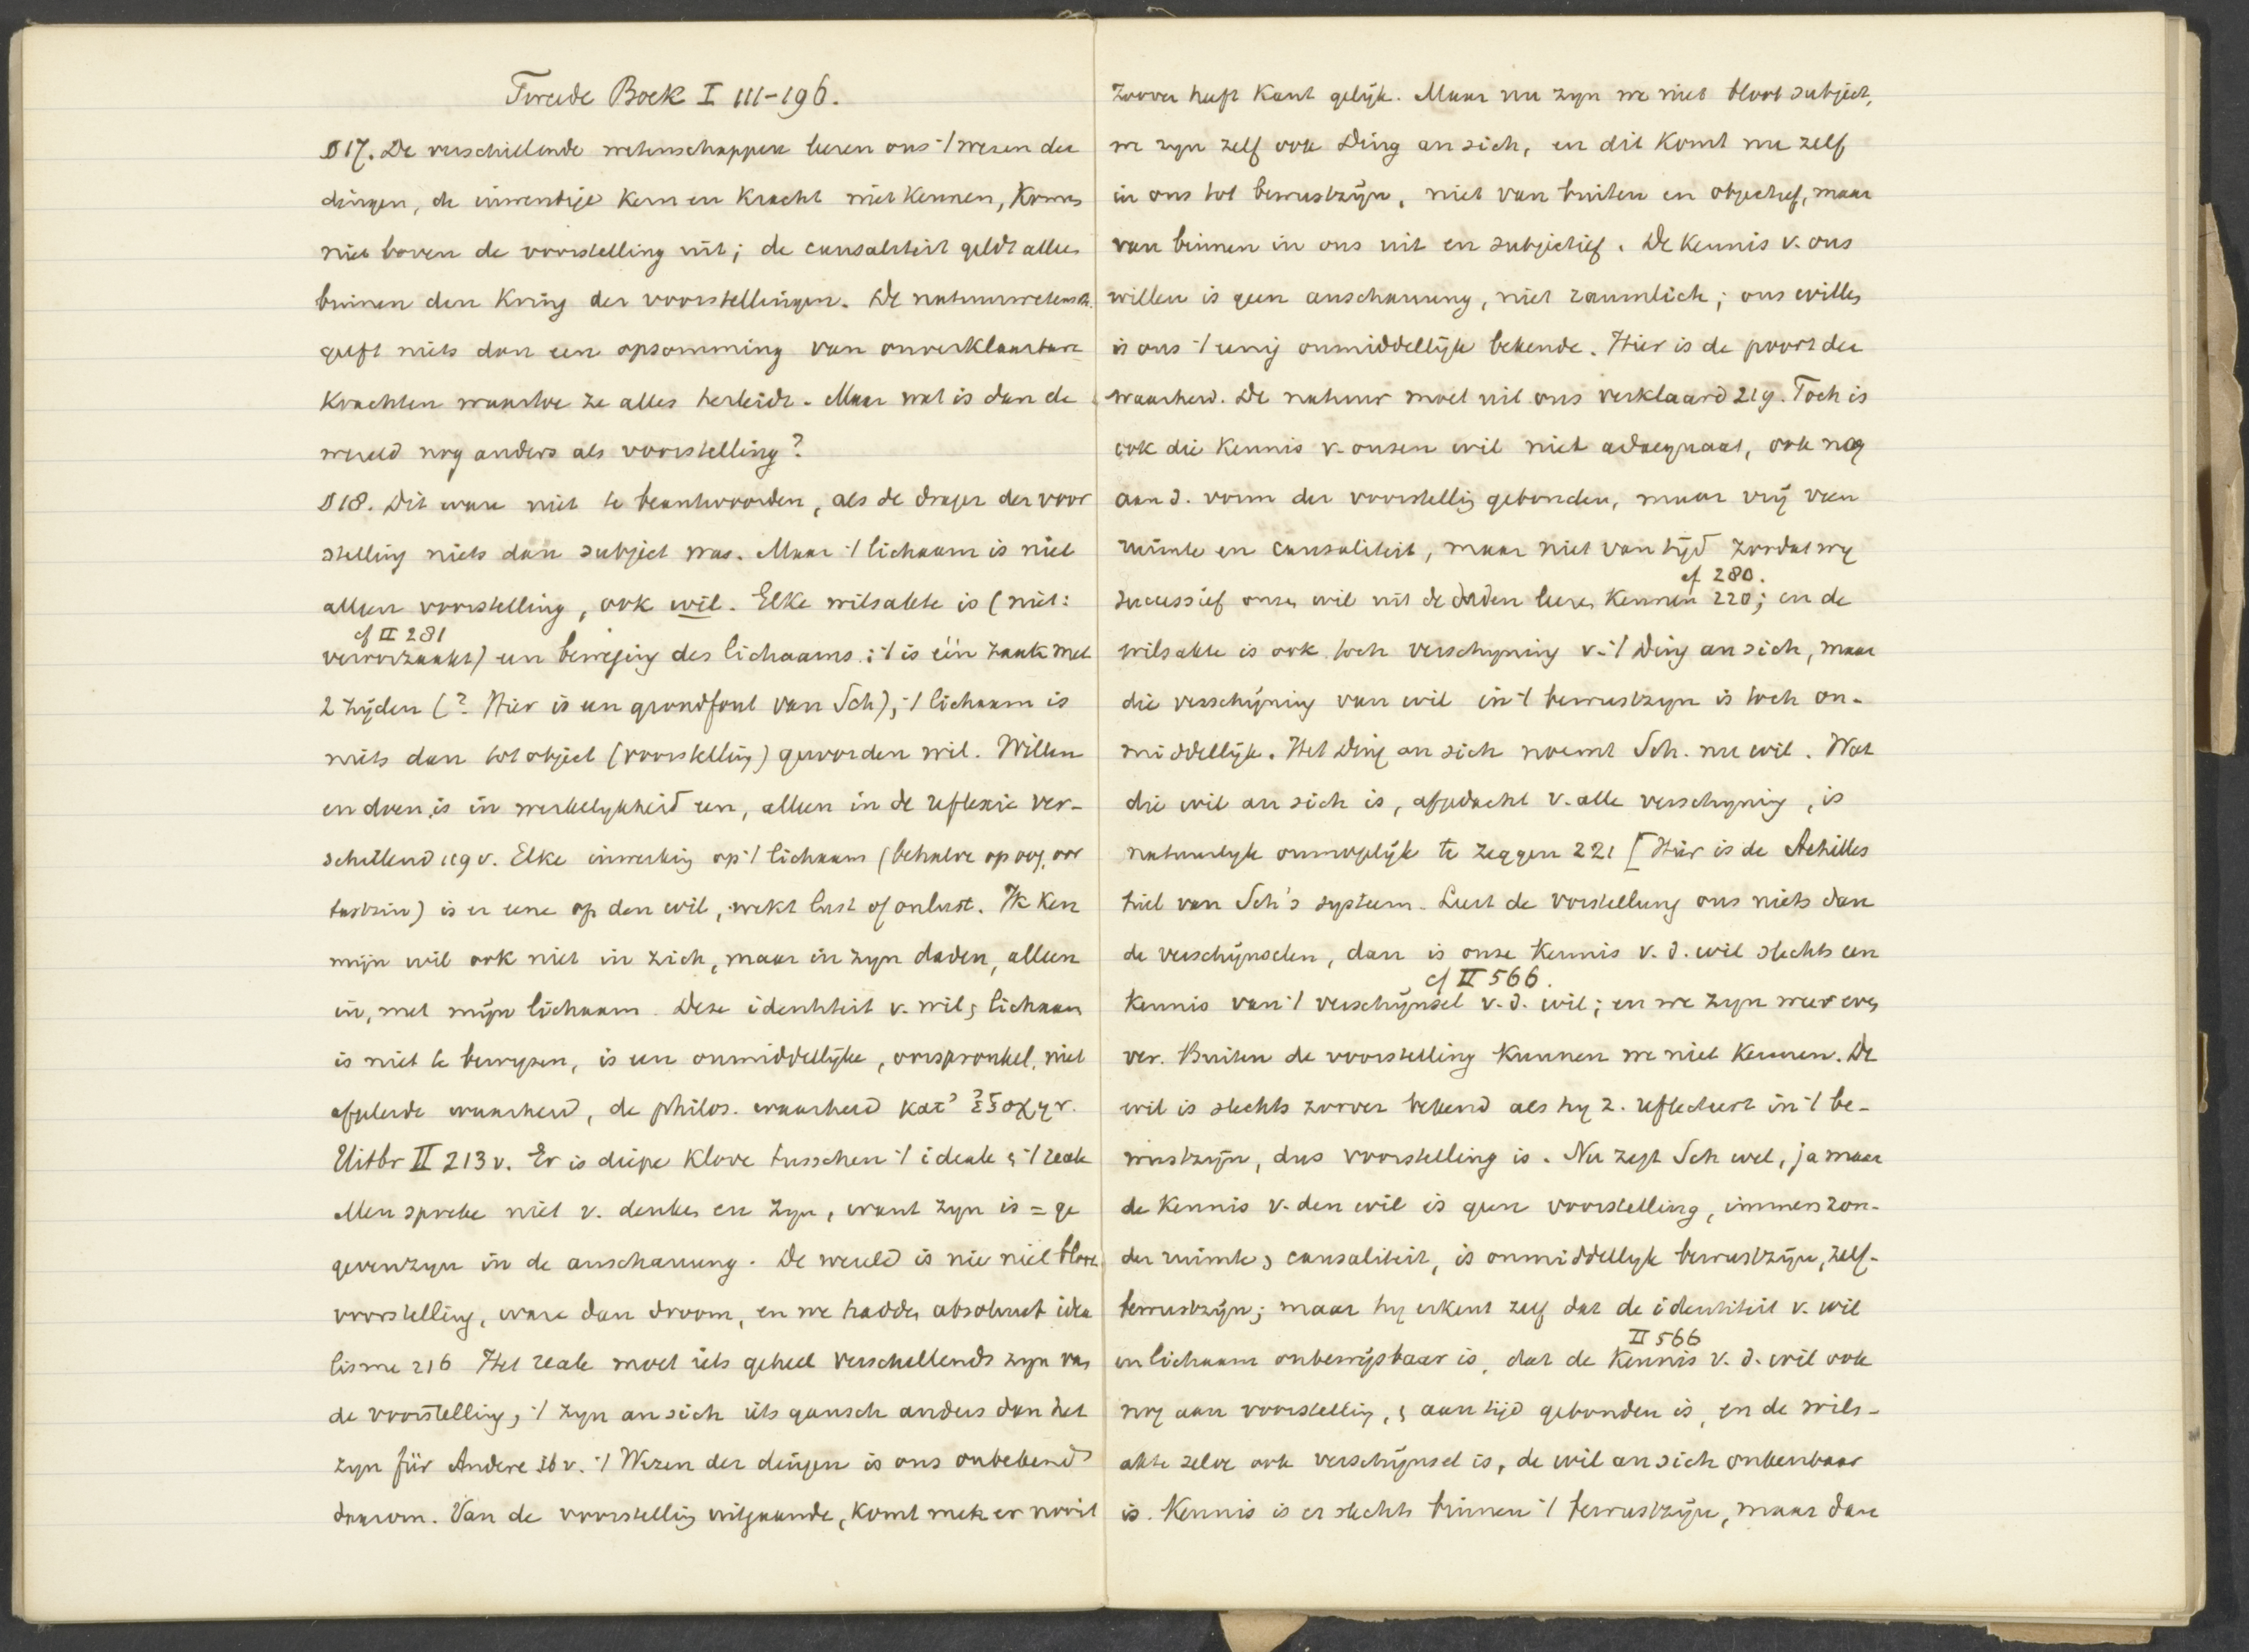 Tweede Boek I 111-196.
§ 17. De verschillende wetenschappen leeren ons 't wezen der
dingen, de inwendige kern en kracht niet kennen, komen
niet boven de voorstelling uit; de causaliteit geldt alleen
binnen den kring der voorstellingen. De natuurwetensch.
geeft niets dan een opsomming van onverklaarbare
krachten waartoe ze alles herleidt. Maar wat is dan de
wereld nog anders als voorstelling?
§ 18. Dit ware niet te beantwoorden, als de drager der voor
stelling niets dan subject was. Maar 't lichaam is niet
alleen voorstelling, ook wil. Elke wilsakte is (niet:
cf II 281
veroorzaakt) een beweging des lichaams; 't is één zaak met
2 zijden (? Hier is een grondfout van Sch), 't lichaam is
niets dan tot object (voorstelling) geworden wil. Willen
en doen is in werkelykheid een, alleen in de reflexie ver-
schillend 119v. Elke inwerking op 't lichaam (behalve op oog, oor
tastzin) is er eene op den wil, wekt lust of onlust. Ik ken
mijn wil ook niet in zich, maar in zyn daden, alleen
in, met mijn lichaam. Deze identiteit v. wil & lichaam
is niet te bewyzen, is een onmiddellijke, oorspronkel. niet
afgeleide waarheid, de philos. waarheid κατ' ἐξοχην.
Uitbr II 213v. Er is diepe klove tusschen 't ideale & 't reale
Men spreke niet v. denken en zyn, want zyn is = ge
gevenzyn in de anschauung. De wereld is nie niet bloot
voorstelling, ware dan droom, en we hadden absoluut idea
lisme 216 Het reale moet iets geheel verschillends zyn van
de voorstelling, 't zyn an sich iets gansch anders dan het
zyn für Andere ib v. 't Wezen der dingen is ons onbekend
daarom. Van de voorstelling uitgaande, komt men er nooit
Zoover heeft Kant gelijk. Maar nu zyn we niet bloot subject,
we zyn zelf ook Ding an sich, en dit komt nu zelf
in ons tot bewustzijn, niet van buiten en objectief, maar
van binnen in ons uit en subjectief. De kennis v. ons
willen is geen anschauung, niet räumlich; ons willen
is ons 't eenig onmiddellijk bekende. Hier is de poort der
waarheid. De natuur moet uit ons verklaard 219. Toch is
ook die kennis v. onzen wil niet adaequaat, ook nog
aan d. vorm der voorstelling gebonden, maar vrij van
ruimte en causaliteit, maar niet van tijd zoodat wy
cf 280.
successief onzen wil uit de daden leeren kennen 220; en de
wilsakte is ook toch verschyning v. 't Ding an sich, maar
die verschijning van wil in 't bewustzyn is toch on-
middellijk. Het Ding an sich noemt Sch. nu wil. Wat
die wil an sich is, afgedacht v. alle verschyning, is
natuurlyk onmogelijk te zeggen 221 [Hier is de Achilles
hiel van Sch's systeem. Leert de vorstellung ons niets dan
de verschijnselen, dan is onze kennis v. d. wil slechts een
cf II 566.
kennis van 't verschijnsel v. d. wil; en we zyn weer even
ver. Buiten de voorstelling kunnen we niet kennen. De
wil is slechts zoover bekend als hy z. reflecteert in 't be-
wustzijn, dus voorstelling is. Nu zegt Sch wel, ja maar
de kennis v. den wil is geen voorstelling, immers zon-
der ruimte & causaliteit, is onmiddellyk bewustzijn, zelf-
bewustzijn; maar hy erkent zelf dat de identiteit v. wil
II 566
en lichaam onbewijsbaar is, dat de kennis v. d. wil ook
nog aan voorstelling, & aan tijd gebonden is, en de wils-
akte zelve ook verschijnsel is, de wil an sich onkenbaar
is. Kennis is er slechts binnen 't bewustzijn, maar dan